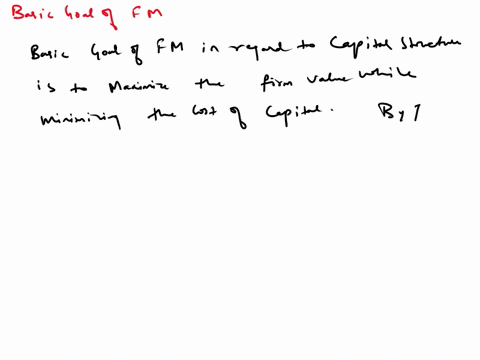 Basic Goal of FM
Basic Goal of FM in regard to Capital Structure
is to Maximize the firm value while
minimizing the Cost of Capital. By